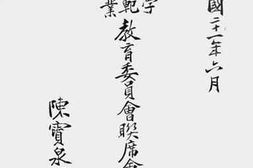 國二十一年六月
範教育委員會聯席會
業
陳寶泉